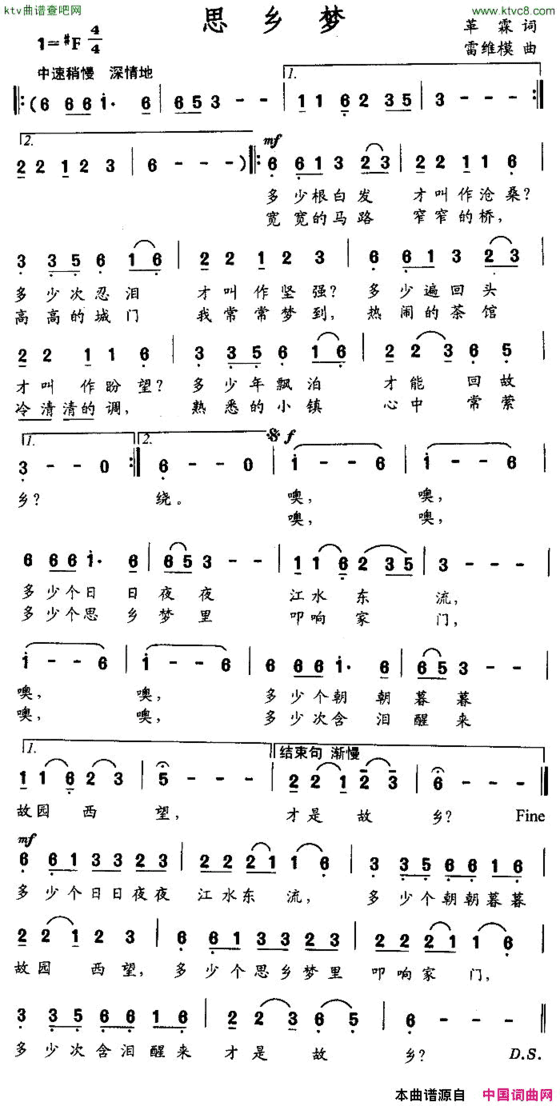 ktv曲谱查吧网 www.ktvc8.com
思乡梦
1=#F 4/4
革霖 词
雷维模 曲
中速稍慢 深情地
1.
(6 6 6 i· 6 | 6 6 5 3 - - | 1 1 6 2 3 5 | 3 - - - :|
2. mf
2 2 1 2 3 | 6 - - -) 6 6 1 3 2 3 | 2 2 1 1 6 |
多少根白发 才叫作沧桑?
宽宽的马路 窄窄的桥,
3 3 5 6 1 6 | 2 2 1 2 3 3 | 6 6 1 3 2 3 |
多少次忍泪 才叫作坚强? 多少遍回头
高高的城门 我常常梦到, 热闹的茶馆
2 2 1 1 6 | 3 3 5 6 1 6 | 2 2 3 6 5 |
才叫作盼望? 多少年飘泊 才能回故
冷清清的调, 熟悉的小镇 心中常萦
1. 2. f
3 - - 0 :| 6 - - 0 | i - - 6 | i - - 6 |
乡? 绕。 噢, 噢,
噢, 噢,
6 6 6 i· 6 | 6 6 5 3 - - | 1 1 6 2 3 5 | 3 - - - |
多少个日 日夜夜 江水东流,
多少个思 乡梦里 叩响家门,
i - - 6 | i - - 6 | 6 6 6 i· 6 | 6 6 5 3 - - |
噢, 噢, 多少个朝 朝暮暮
噢, 噢, 多少次含 泪醒来
1. 结束句 渐慢
1 1 6 2 3 | 5 - - - | 2 2 1 2 3 | 6 - - - |
故园西望, 才是故乡? Fine
mf
6 6 1 3 3 2 3 | 2 2 2 1 1 6 | 3 3 5 6 6 1 6 |
多少个日日夜夜 江水东流, 多少个朝朝暮暮
2 2 1 2 3 | 6 6 1 3 3 2 3 | 2 2 2 1 1 6 |
故园西望, 多少个思乡梦里 叩响家门,
3 3 5 6 1 6 | 2 2 3 6 5 | 6 - - |
多少次含泪醒来 才是故乡? D.S.
本曲谱源自 中国词曲网